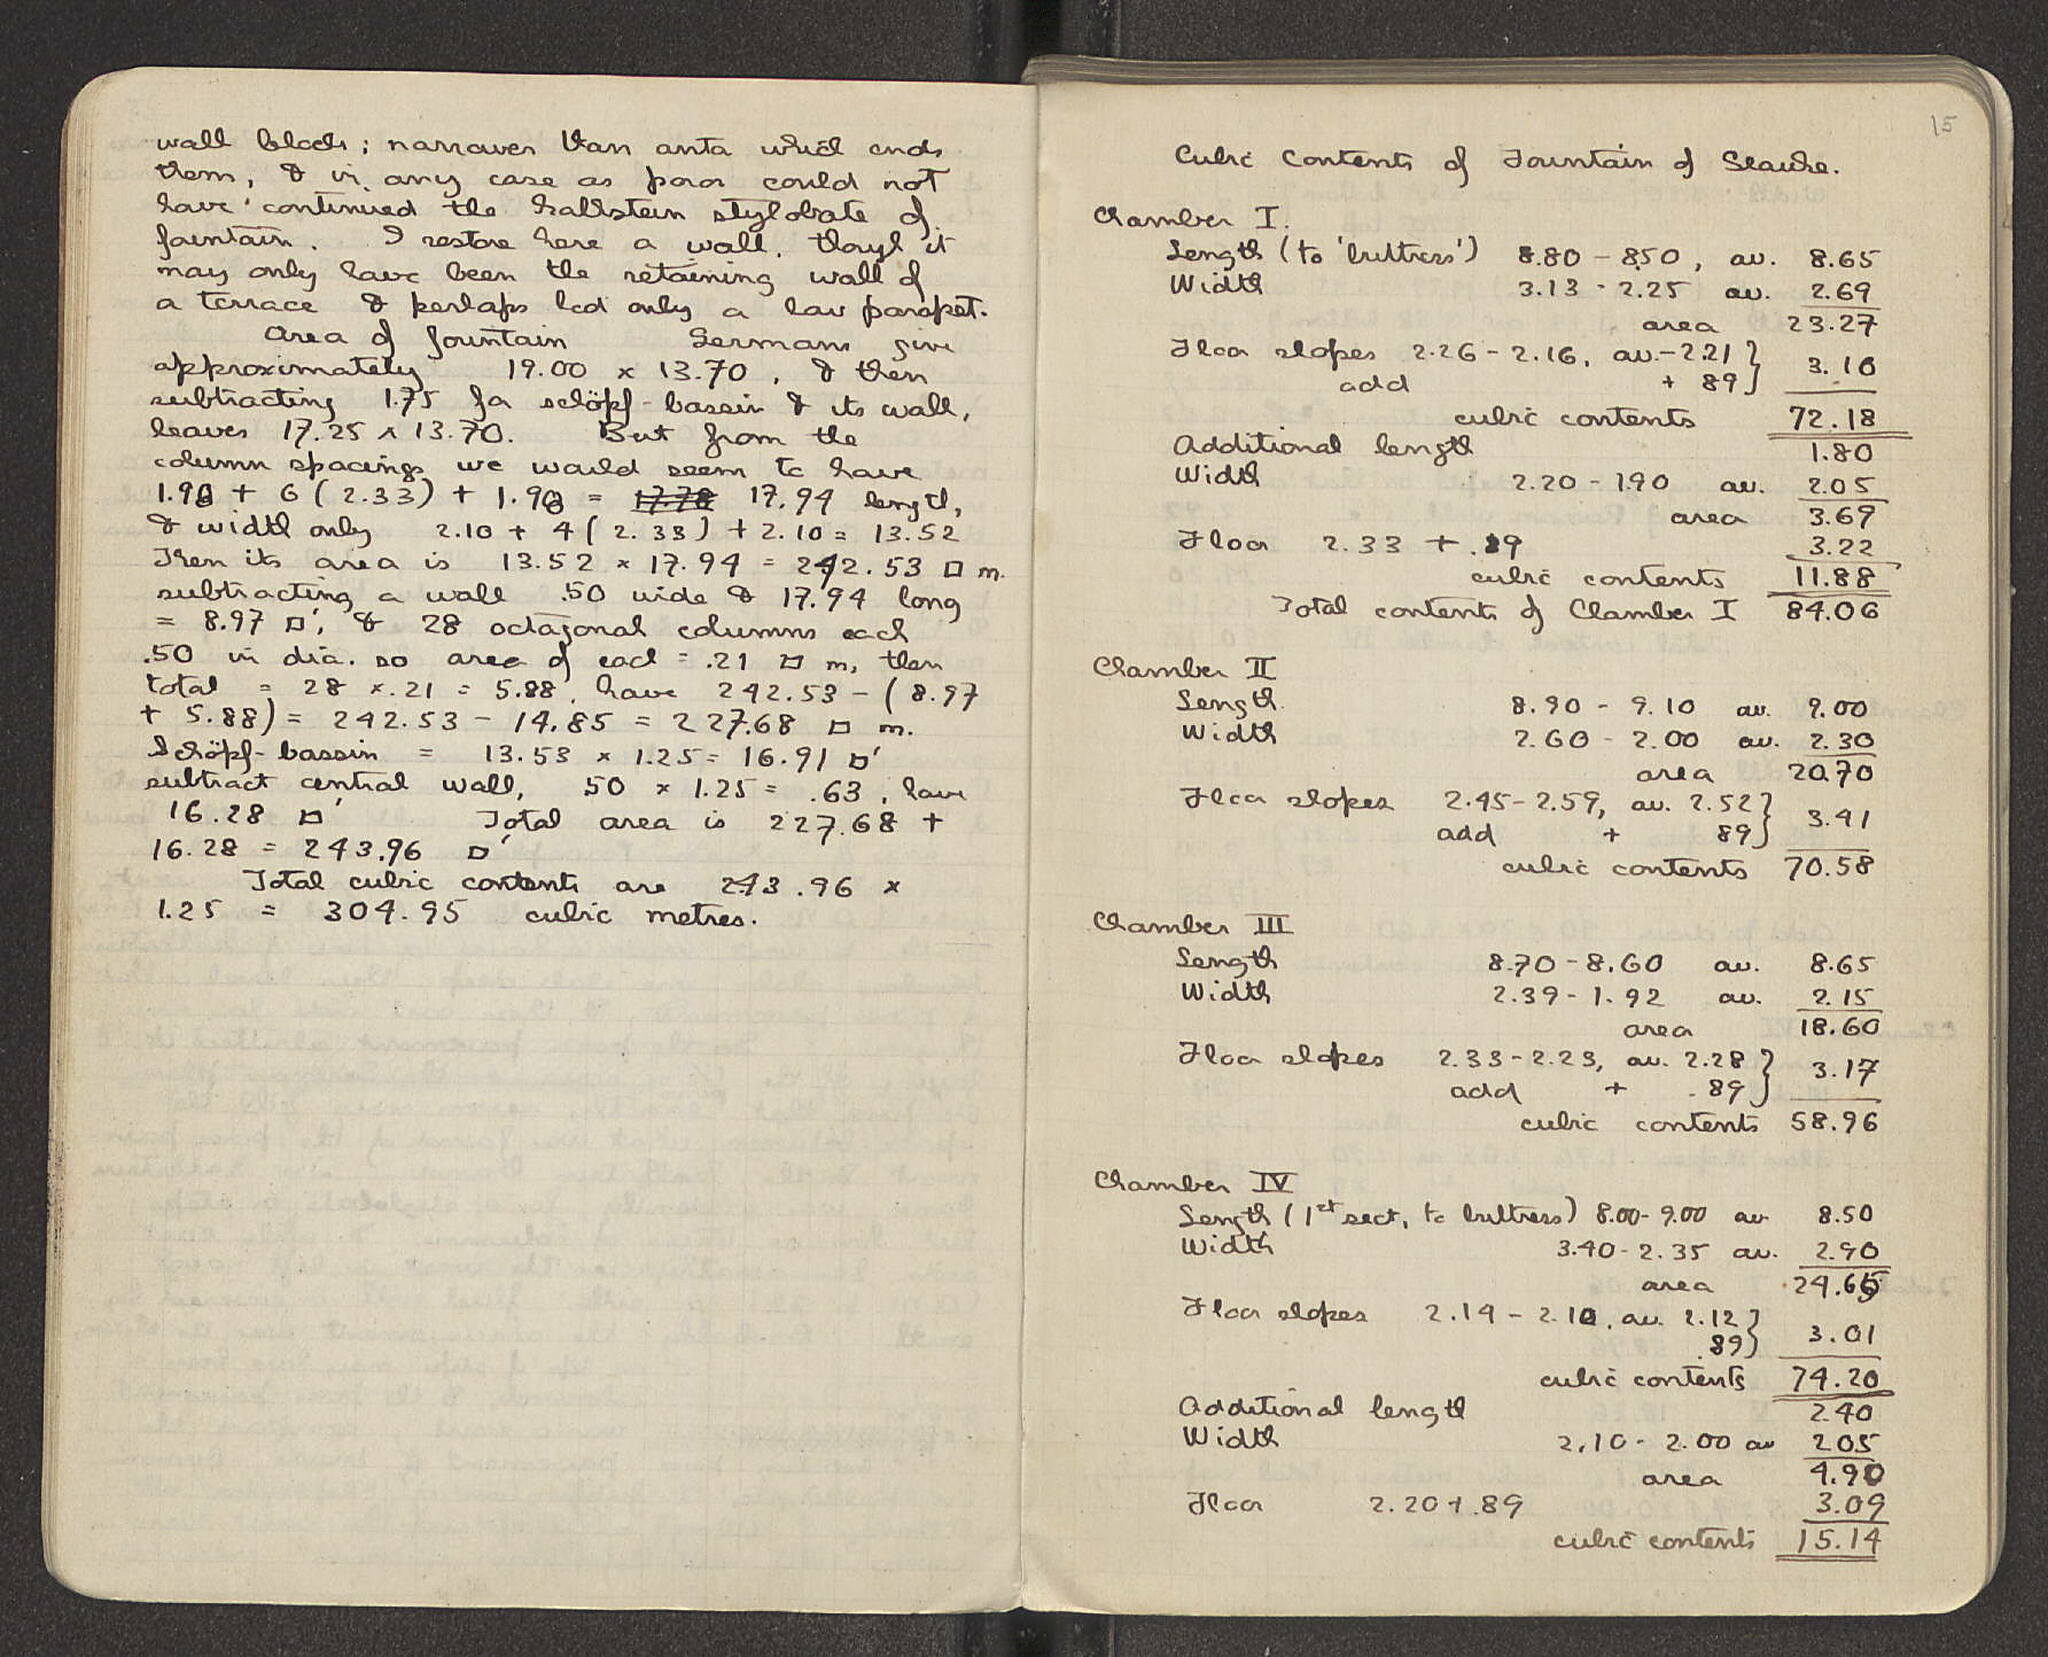 wall blocks; narrower than anta which ends
them, & in any case as poros could not
have continued the kalkstein stylobate of
fountain. I restore here a wall, though it
may only have been the retaining wall of
a terrace & perhaps had only a low parapet.
Area of fountain Germans give
approximately 19.00 x 13.70, & then
subtracting 1.75 for schöpf-bassin & its wall,
leaves 17.25 x 13.70. But from the
column spacings we would seem to have
1.98 + 6 (2.33) + 1.98 = 17.78 17.94 length,
& width only 2.10 + 4 (2.33) + 2.10 = 13.52
Then its area is 13.52 x 17.94 = 242.53 □ m.
subtracting a wall .50 wide & 17.94 long
= 8.97 □', & 28 octagonal columns each
.50 in dia. so area of each = .21 □ m, then
total = 28 x .21 = 5.88, have 242.53 - (8.97
+ 5.88) = 242.53 - 14.85 = 227.68 □ m.
Schöpf-bassin = 13.53 x 1.25 = 16.91 □'
subtract central wall, 50 x 1.25 = .63, have
16.28 □' Total area is 227.68 +
16.28 = 243.96 □'
Total cubic contents are 243.96 x
1.25 = 304.95 cubic metres.
15
Cubic Contents of Fountain of Glauke.
Chamber I.
Length (to 'buttress') 8.80 - 8.50, av. 8.65
Width 3.13 - 2.25 av. 2.69
area 23.27
Floor slopes 2.26 - 2.16, av. - 2.21 } 3.10
add + 89 }
cubic contents 72.18
Additional length 1.80
Width 2.20 - 1.90 av. 2.05
area 3.69
Floor 2.33 + .89 3.22
cubic contents 11.88
Total contents of Chamber I 84.06
Chamber II
Length 8.90 - 9.10 av. 9.00
Width 2.60 - 2.00 av. 2.30
area 20.70
Floor slopes 2.45 - 2.59, av. 2.52 } 3.41
add + 89 }
cubic contents 70.58
Chamber III
Length 8.70 - 8.60 av. 8.65
Width 2.39 - 1.92 av. 2.15
area 18.60
Floor slopes 2.33 - 2.23, av. 2.28 } 3.17
add + .89 }
cubic contents 58.96
Chamber IV
Length (1st sect, to buttress) 8.00 - 9.00 av 8.50
Width 3.40 - 2.35 av. 2.90
area 24.65
Floor slopes 2.14 - 2.10, av. 2.12 } 3.01
.89 }
cubic contents 74.20
Additional length 2.40
Width 2.10 - 2.00 av 2.05
area 4.90
Floor 2.20 + .89 3.09
cubic contents 15.14